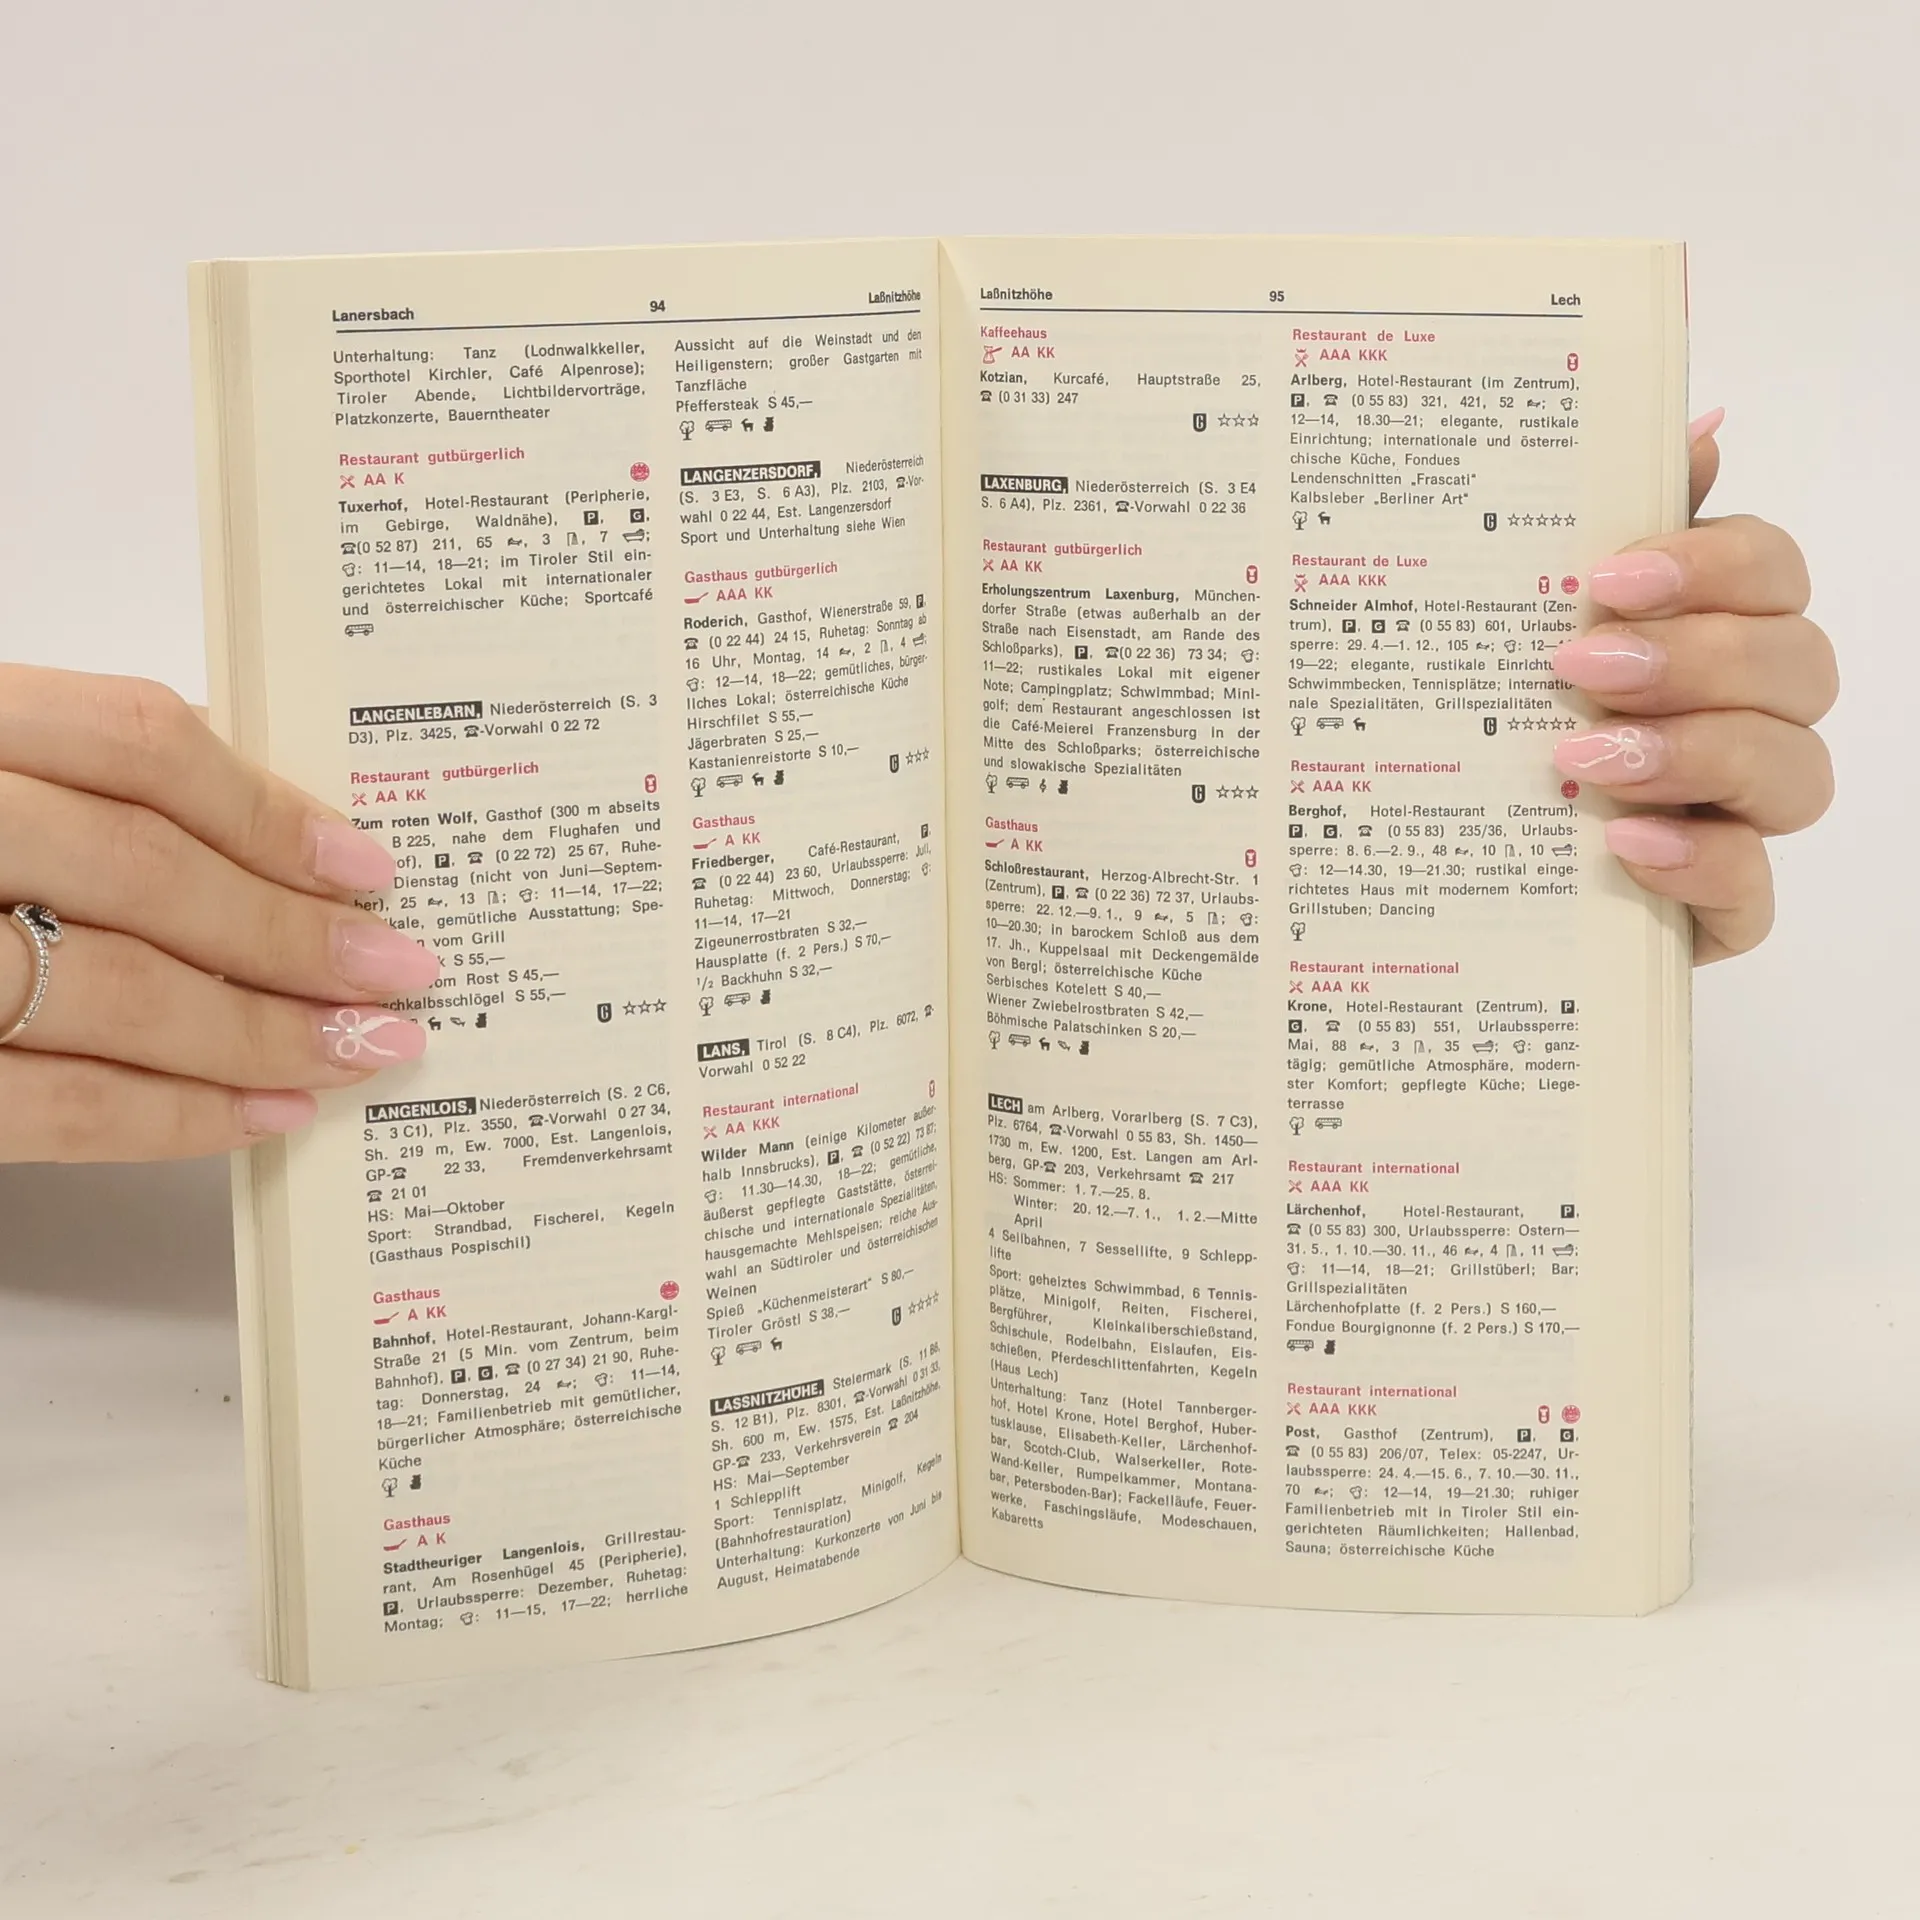 Lanersbach 94 Laßnitzhöhe
Unterhaltung: Tanz (Lodnwalkkeller,
Sporthotel Kirchler, Café Alpenrose);
Tiroler Abende, Lichtbildervorträge,
Platzkonzerte, Bauerntheater
Restaurant gutbürgerlich
AA K
Tuxerhof, Hotel-Restaurant (Peripherie,
im Gebirge, Waldnähe), P, G,
☎(0 52 87) 211, 65 , 3 , 7 ;
: 11—14, 18—21; im Tiroler Stil ein-
gerichtetes Lokal mit internationaler
und österreichischer Küche; Sportcafé
LANGENLEBARN, Niederösterreich (S. 3
D3), Plz. 3425, ☎-Vorwahl 0 22 72
Restaurant gutbürgerlich
AA KK
Zum roten Wolf, Gasthof (300 m abseits
B 225, nahe dem Flughafen und
of), P, ☎ (0 22 72) 25 67, Ruhe-
Dienstag (nicht von Juni—Septem-
ber), 25 , 13 ; : 11—14, 17—22;
kale, gemütliche Ausstattung; Spe-
vom Grill
k S 55,—
om Rost S 45,—
schkalbsschlögel S 55,—
☆☆☆
LANGENLOIS, Niederösterreich (S. 2 C6,
S. 3 C1), Plz. 3550, ☎-Vorwahl 0 27 34,
Sh. 219 m, Ew. 7000, Est. Langenlois,
GP-☎ 22 33, Fremdenverkehrsamt
☎ 21 01
HS: Mai—Oktober
Sport: Strandbad, Fischerei, Kegeln
(Gasthaus Pospischil)
Gasthaus
A KK
Bahnhof, Hotel-Restaurant, Johann-Kargl-
Straße 21 (5 Min. vom Zentrum, beim
Bahnhof), P, G, ☎ (0 27 34) 21 90, Ruhe-
tag: Donnerstag, 24 ; : 11—14,
18—21; Familienbetrieb mit gemütlicher,
bürgerlicher Atmosphäre; österreichische
Küche
Gasthaus
A K
Stadtheuriger Langenlois, Grillrestau-
rant, Am Rosenhügel 45 (Peripherie),
P, Urlaubssperre: Dezember, Ruhetag:
Montag; : 11—15, 17—22; herrliche
Aussicht auf die Weinstadt und den
Heiligenstern; großer Gastgarten mit
Tanzfläche
Pfeffersteak S 45,—
LANGENZERSDORF, Niederösterreich
(S. 3 E3, S. 6 A3), Plz. 2103, ☎-Vor-
wahl 0 22 44, Est. Langenzersdorf
Sport und Unterhaltung siehe Wien
Gasthaus gutbürgerlich
AAA KK
Roderich, Gasthof, Wienerstraße 59, P,
☎ (0 22 44) 24 15, Ruhetag: Sonntag ab
16 Uhr, Montag, 14 , 2 , 4 ;
: 12—14, 18—22; gemütliches, bürger-
liches Lokal; österreichische Küche
Hirschfilet S 55,—
Jägerbraten S 25,—
Kastanienreistorte S 10,—
☆☆☆
Gasthaus
A KK
Friedberger, Café-Restaurant, P,
☎ (0 22 44) 23 60, Urlaubssperre: Juli,
Ruhetag: Mittwoch, Donnerstag; :
11—14, 17—21
Zigeunerrostbraten S 32,—
Hausplatte (f. 2 Pers.) S 70,—
1/2 Backhuhn S 32,—
LANS, Tirol (S. 8 C4), Plz. 6072, ☎-
Vorwahl 0 52 22
Restaurant international
AA KKK
Wilder Mann (einige Kilometer außer-
halb Innsbrucks), P, ☎ (0 52 22) 73 87;
: 11.30—14.30, 18—22; gemütliche,
äußerst gepflegte Gaststätte, österrei-
chische und internationale Spezialitäten,
hausgemachte Mehlspeisen; reiche Aus-
wahl an Südtiroler und österreichischen
Weinen
Spieß „Küchenmeisterart“ S 80,—
Tiroler Gröstl S 38,—
☆☆☆☆
LASSNITZHÖHE, Steiermark (S. 11 B6,
S. 12 B1), Plz. 8301, ☎-Vorwahl 0 31 33,
Sh. 600 m, Ew. 1575, Est. Laßnitzhöhe,
GP-☎ 233, Verkehrsverein ☎ 204
HS: Mai—September
1 Schlepplift
Sport: Tennisplatz, Minigolf, Kegeln
(Bahnhofrestauration)
Unterhaltung: Kurkonzerte von Juni bis
August, Heimatabende
Laßnitzhöhe 95 Lech
Kaffeehaus
AA KK
Kotzian, Kurcafé, Hauptstraße 25,
☎ (0 31 33) 247
☆☆☆
LAXENBURG, Niederösterreich (S. 3 E4
S. 6 A4), Plz. 2361, ☎-Vorwahl 0 22 36
Restaurant gutbürgerlich
AA KK
Erholungszentrum Laxenburg, München-
dorfer Straße (etwas außerhalb an der
Straße nach Eisenstadt, am Rande des
Schloßparks), P, ☎(0 22 36) 73 34; :
11—22; rustikales Lokal mit eigener
Note; Campingplatz; Schwimmbad; Mini-
golf; dem Restaurant angeschlossen ist
die Café-Meierei Franzensburg in der
Mitte des Schloßparks; österreichische
und slowakische Spezialitäten
☆☆☆
Gasthaus
A KK
Schloßrestaurant, Herzog-Albrecht-Str. 1
(Zentrum), P, ☎ (0 22 36) 72 37, Urlaubs-
sperre: 22. 12.—9. 1., 9 , 5 ; :
10—20.30; in barockem Schloß aus dem
17. Jh., Kuppelsaal mit Deckengemälde
von Bergl; österreichische Küche
Serbisches Kotelett S 40,—
Wiener Zwiebelrostbraten S 42,—
Böhmische Palatschinken S 20,—
LECH am Arlberg, Vorarlberg (S. 7 C3),
Plz. 6764, ☎-Vorwahl 0 55 83, Sh. 1450—
1730 m, Ew. 1200, Est. Langen am Arl-
berg, GP-☎ 203, Verkehrsamt ☎ 217
HS: Sommer: 1. 7.—25. 8.
Winter: 20. 12.—7. 1., 1. 2.—Mitte
April
4 Seilbahnen, 7 Sessellifte, 9 Schlepp-
lifte
Sport: geheiztes Schwimmbad, 6 Tennis-
plätze, Minigolf, Reiten, Fischerei,
Bergführer, Kleinkaliberschießstand,
Schischule, Rodelbahn, Eislaufen, Eis-
schießen, Pferdeschlittenfahrten, Kegeln
(Haus Lech)
Unterhaltung: Tanz (Hotel Tannberger-
hof, Hotel Krone, Hotel Berghof, Huber-
tusklause, Elisabeth-Keller, Lärchenhof-
bar, Scotch-Club, Walserkeller, Rote-
Wand-Keller, Rumpelkammer, Montana-
bar, Petersboden-Bar); Fackelläufe, Feuer-
werke, Faschingsläufe, Modeschauen,
Kabaretts
Restaurant de Luxe
AAA KKK
Arlberg, Hotel-Restaurant (im Zentrum),
P, ☎ (0 55 83) 321, 421, 52 ; :
12—14, 18.30—21; elegante, rustikale
Einrichtung; internationale und österrei-
chische Küche, Fondues
Lendenschnitten „Frascati“
Kalbsleber „Berliner Art“
☆☆☆☆☆
Restaurant de Luxe
AAA KKK
Schneider Almhof, Hotel-Restaurant (Zen-
trum), P, G ☎ (0 55 83) 601, Urlaubs-
sperre: 29. 4.—1. 12., 105 ; : 12—
19—22; elegante, rustikale Einrichtu
Schwimmbecken, Tennisplätze; internatio-
nale Spezialitäten, Grillspezialitäten
☆☆☆☆☆
Restaurant international
AAA KK
Berghof, Hotel-Restaurant (Zentrum),
P, G, ☎ (0 55 83) 235/36, Urlaubs-
sperre: 8. 6.—2. 9., 48 , 10 , 10 ;
: 12—14.30, 19—21.30; rustikal einge-
richtetes Haus mit modernem Komfort;
Grillstuben; Dancing
Restaurant international
AAA KK
Krone, Hotel-Restaurant (Zentrum), P,
G, ☎ (0 55 83) 551, Urlaubssperre:
Mai, 88 , 3 , 35 ; : ganz-
tägig; gemütliche Atmosphäre, modern-
ster Komfort; gepflegte Küche; Liege-
terrasse
Restaurant international
AAA KK
Lärchenhof, Hotel-Restaurant, P,
☎ (0 55 83) 300, Urlaubssperre: Ostern—
31. 5., 1. 10.—30. 11., 46 , 4 , 11 ;
: 11—14, 18—21; Grillstüberl; Bar;
Grillspezialitäten
Lärchenhofplatte (f. 2 Pers.) S 160,—
Fondue Bourgignonne (f. 2 Pers.) S 170,—
Restaurant international
AAA KKK
Post, Gasthof (Zentrum), P, G,
☎ (0 55 83) 206/07, Telex: 05-2247, Ur-
laubssperre: 24. 4.—15. 6., 7. 10.—30. 11.,
70 ; : 12—14, 19—21.30; ruhiger
Familienbetrieb mit in Tiroler Stil ein-
gerichteten Räumlichkeiten; Hallenbad,
Sauna; österreichische Küche